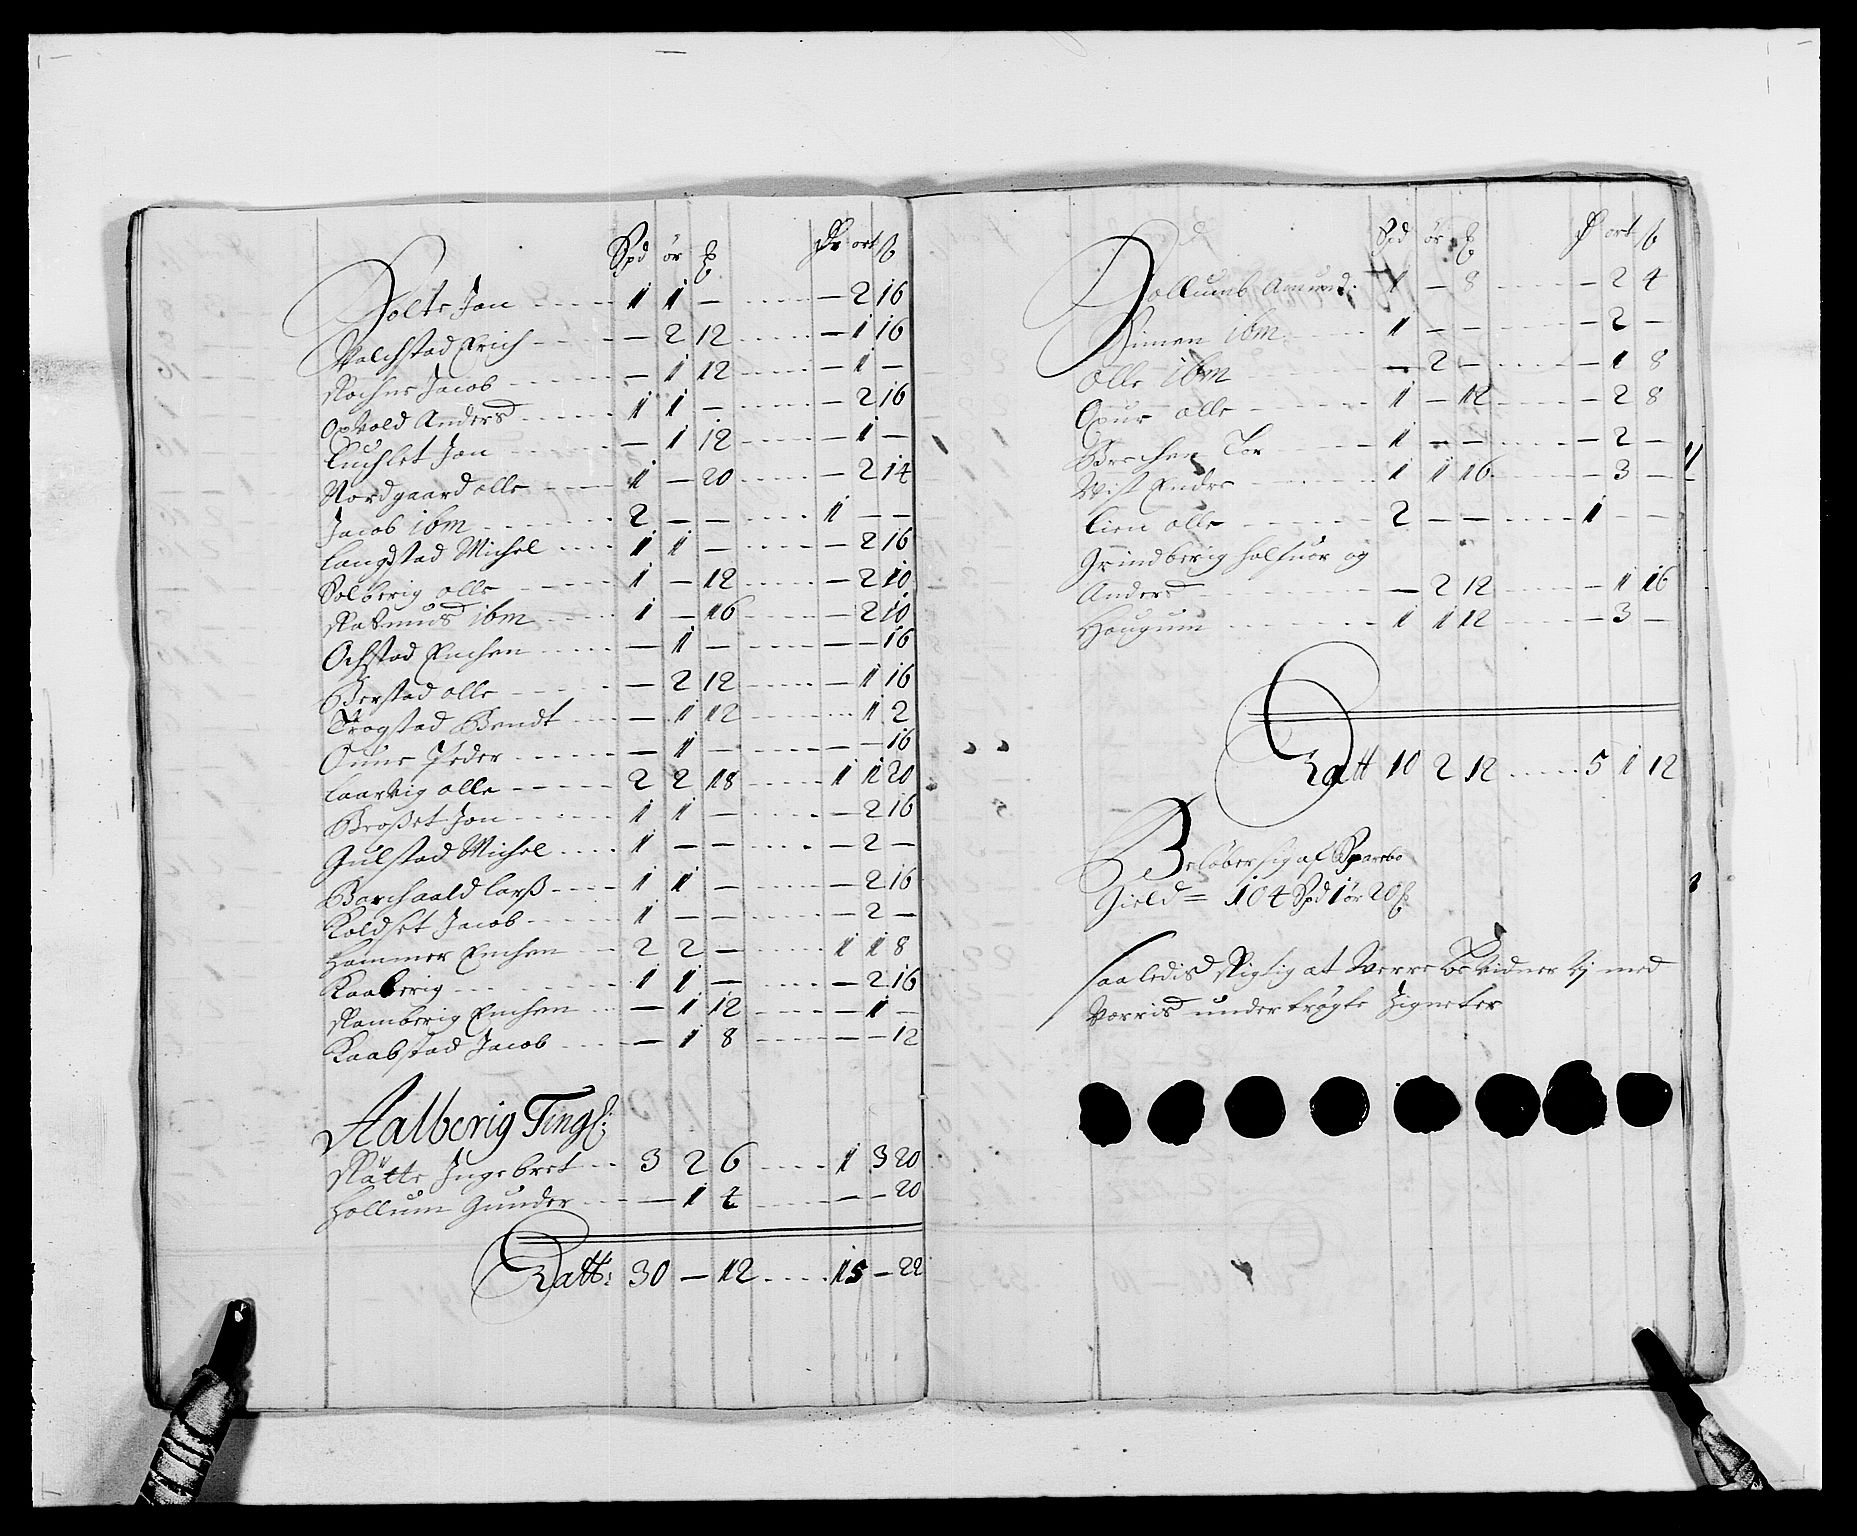 Spd ør ₶ Dr ort ß
Holte Jon 1 1 – – 2 16
Valchstad Erich – 2 12 – 1 16
Rochne Jacob – 1 12 – 1 –
Opvold Anders 1 1 – – 2 16
Luchlet Jon – 1 12 – 1 –
Nordgaard olle 1 – 20 – 2 14
Jacob ibm 2 – – 1 – –
Langstad Michel 1 1 – – 2 16
Solberig olle 1 – 12 – 2 10
Rasmus ibm 1 – 16 – 2 10
Ochstad Enchen – 1 – – – 16
Berstad olle – 2 12 – 1 16
Trogstad Bendt – 1 12 1 2
Oune Peder – 1 – – – 16
Laarvig olle 2 2 18 1 1 20
Broset Jon 1 1 – – 2 16
Gulstad Michel 1 – – – 2 –
Barchaald Larß 1 1 – – 2 16
Koldset Jacob 1 – – – 2 –
Hammer Enchen 2 2 – 1 1 8
Kaaberig 1 1 – – 2 16
Ramberig Enchen – 1 12 – 1 –
Kaabstad Jacob – 1 8 – – 12
Aalberig Tingl:
Råtte Ingebret 3 2 6 1 3 20
Hollum Gunder – 1 4 – – 20
Latt: 30 – 12 15 – 22
Spd ør ₶ D ort ß
Hollumb Amund: 1 – 8 – 2 4
Simen ibm 1 – – – 2 –
Olle ibm – 2 – – 1 8
Opur olle 1 – 12 – 2 8
Brechen Tor 1 – – – 2 –
Vist Endre 1 1 16 – 3 –
Lien olle 2 – – 1 – –
Grindberig Halfuor og
Anders – 2 12 – 1 16
Haugum 1 1 12 – 3 –
Latt 10 2 12 5 1 12
Beløber sig af Sparebo
Gield = 104 Spd 1 ør 20 ₶
Saaledis Rigtig at Verre Be Vidner Vj med
Vorris undertrøgte Zigneter